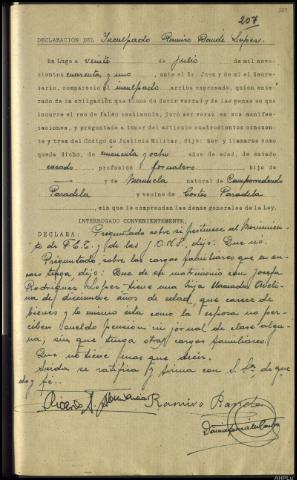 207
DECLARACIÓN DEL Inculpado Ramiro Bande Lopez.
En Lugo a veinte de julio de mil nove-
cientos cuarenta y uno, ante el Sr. Juez y de mi el Secre-
tario, compareció el inculpado arriba expresado, quien ente-
rado de la obligación que tiene de decir verdad y de las penas en que
incurre el reo de falso testimonio, juró ser veraz en sus manifes-
taciones, y preguntado a tenor del artículo cuatrocientos ochenta
y tres del Código de Justicia Militar, dijo: Ser y llamarse como
queda dicho, de cincuenta y ocho años de edad, de estado
casado profesión jornalero hijo de
— y de Manuela natural de
Paradela y vecino de Cortes - Paradela
, sin que le comprendan las demás generales de la Ley.
INTERROGADO CONVENIENTEMENTE,
DECLARA: Preguntado sobre si pertenece al Movimien-
to de F.E.T. y de las J.O.N.S., dijo: Que no.
Preguntado sobre las cargas familiares que a su
cargo tenga dijo: Que de su matrimonio con Josefa
Rodriguez Lopez tiene una hija llamada
de diecinueve años de edad, que carece de
bienes y lo mismo esta como la esposa no per-
ciben sueldo pensión ni jornal de clase algu-
na, sin que tenga otras cargas familiares.
Que no tiene mas que decir.
Leida se ratifica y firma con S.Sª. de que
doy fe.
Ramiro Bande
AHPLu